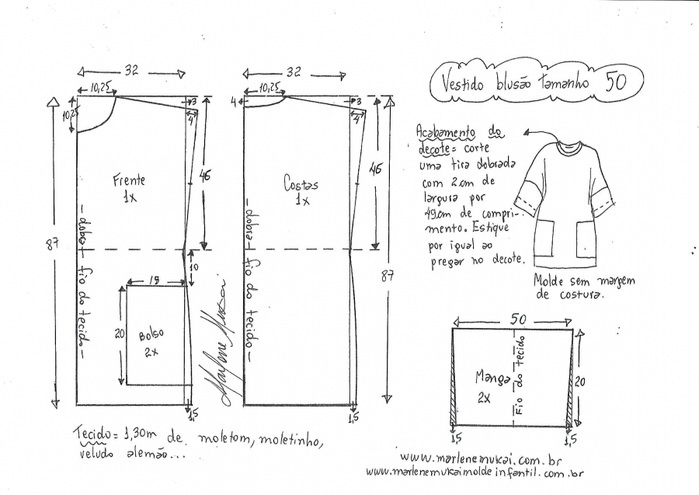 Vestido blusão Tamanho 50
32
10,25
10,25
3
4
46
87
Frente
1x
-dobra- fio do tecido-
10
15
20
Bolso
2x
1,5
Marlene Mukai
32
10,25
4
3
4
46
87
Costas
1x
-dobra- fio do tecido-
1,5
Acabamento do
decote= corte
uma tira dobrada
com 2cm de
largura por
49cm de compri-
mento. Estique
por igual ao
pregar no decote.
Molde sem margem
de costura.
50
Manga
2x
Fio do tecido
20
1,5
1,5
Tecido= 1,30m de moletom, moletinho,
veludo alemão...
www.marlenemukai.com.br
www.marlenemukaimoldeinfantil.com.br